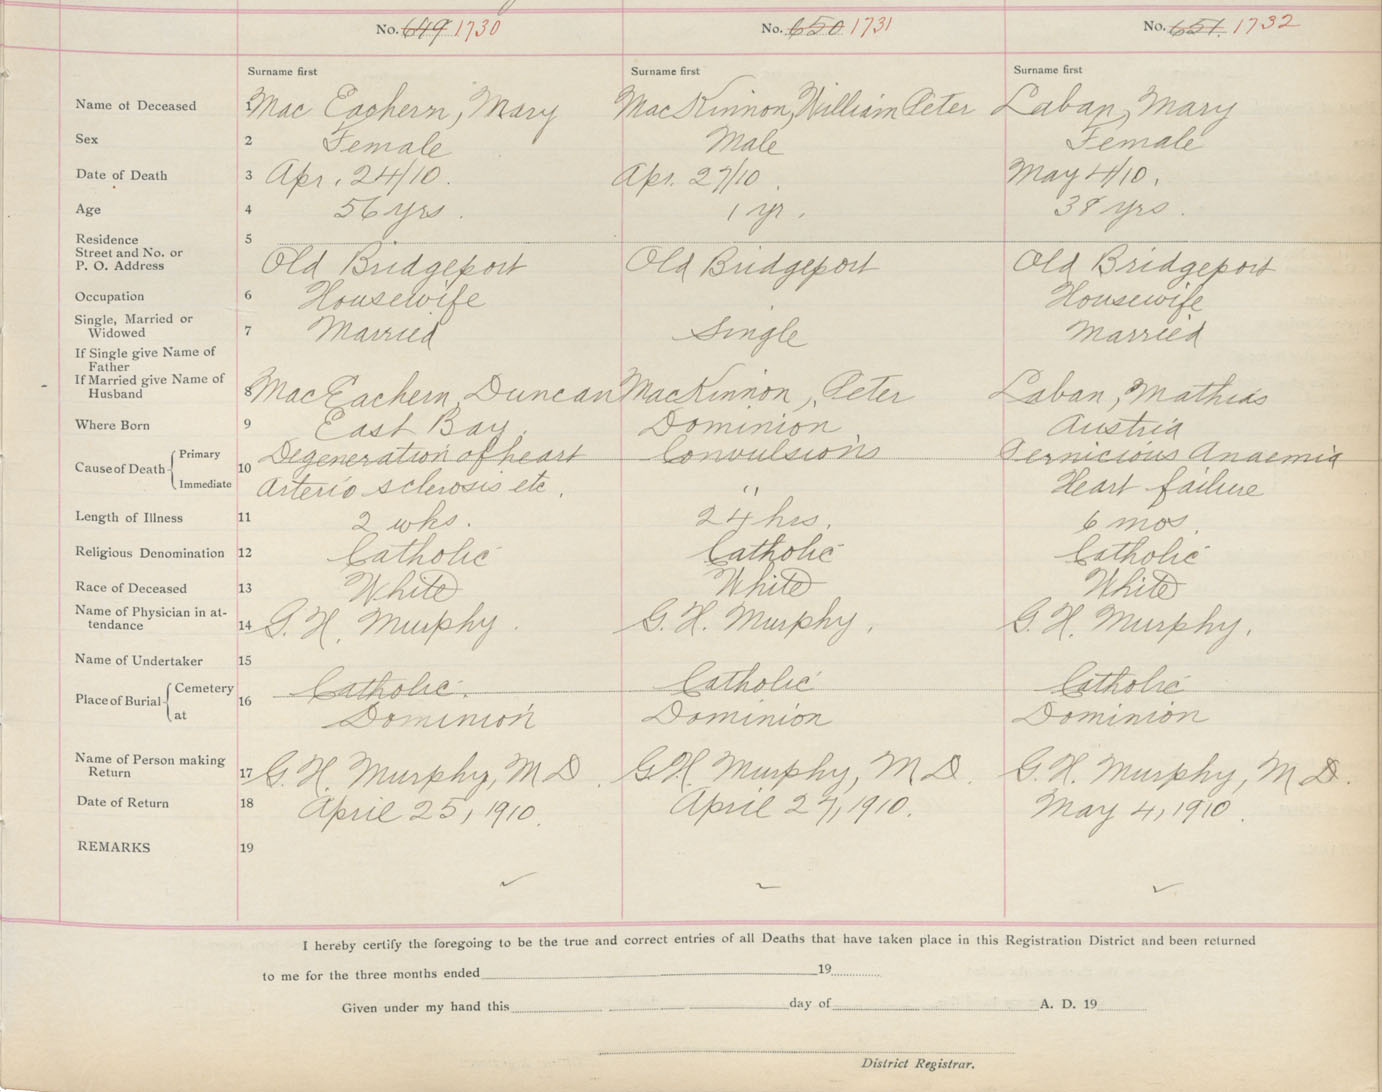 No. 649 1730 No. 650 1731 No. 651. 1732
Surname first Surname first Surname first
Name of Deceased 1 Mac Eachern, Mary MacKinnon, William Peter Laban, Mary
Sex 2 Female Male Female
Date of Death 3 Apr. 24/10. Apr. 27/10. May 4/10.
Age 4 56 yrs. 1 yr. 38 yrs.
Residence 5
Street and No. or
P. O. Address Old Bridgeport Old Bridgeport Old Bridgeport
Occupation 6 Housewife Housewife
Single, Married or
Widowed 7 Married Single Married
If Single give Name of
Father
If Married give Name of
Husband 8 MacEachern, Duncan MacKinnon, Peter Laban, Mathias
Where Born 9 East Bay. Dominion Austria
Cause of Death Primary 10 Degeneration of heart Convulsions Pernicious Anaemia
Immediate Arterio sclerosis etc. " Heart failure
Length of Illness 11 2 wks. 24 hrs. 6 mos.
Religious Denomination 12 Catholic Catholic Catholic
Race of Deceased 13 White White White
Name of Physician in at-
tendance 14 G. H. Murphy. G. H. Murphy. G. H. Murphy.
Name of Undertaker 15
Place of Burial Cemetery 16 Catholic. Catholic Catholic
at Dominion Dominion Dominion
Name of Person making
Return 17 G. H. Murphy, M D. G H Murphy, M D. G. H. Murphy, M D.
Date of Return 18 April 25, 1910. April 27, 1910. May 4, 1910.
REMARKS 19
I hereby certify the foregoing to be the true and correct entries of all Deaths that have taken place in this Registration District and been returned
to me for the three months ended 19
Given under my hand this day of A. D. 19
District Registrar.